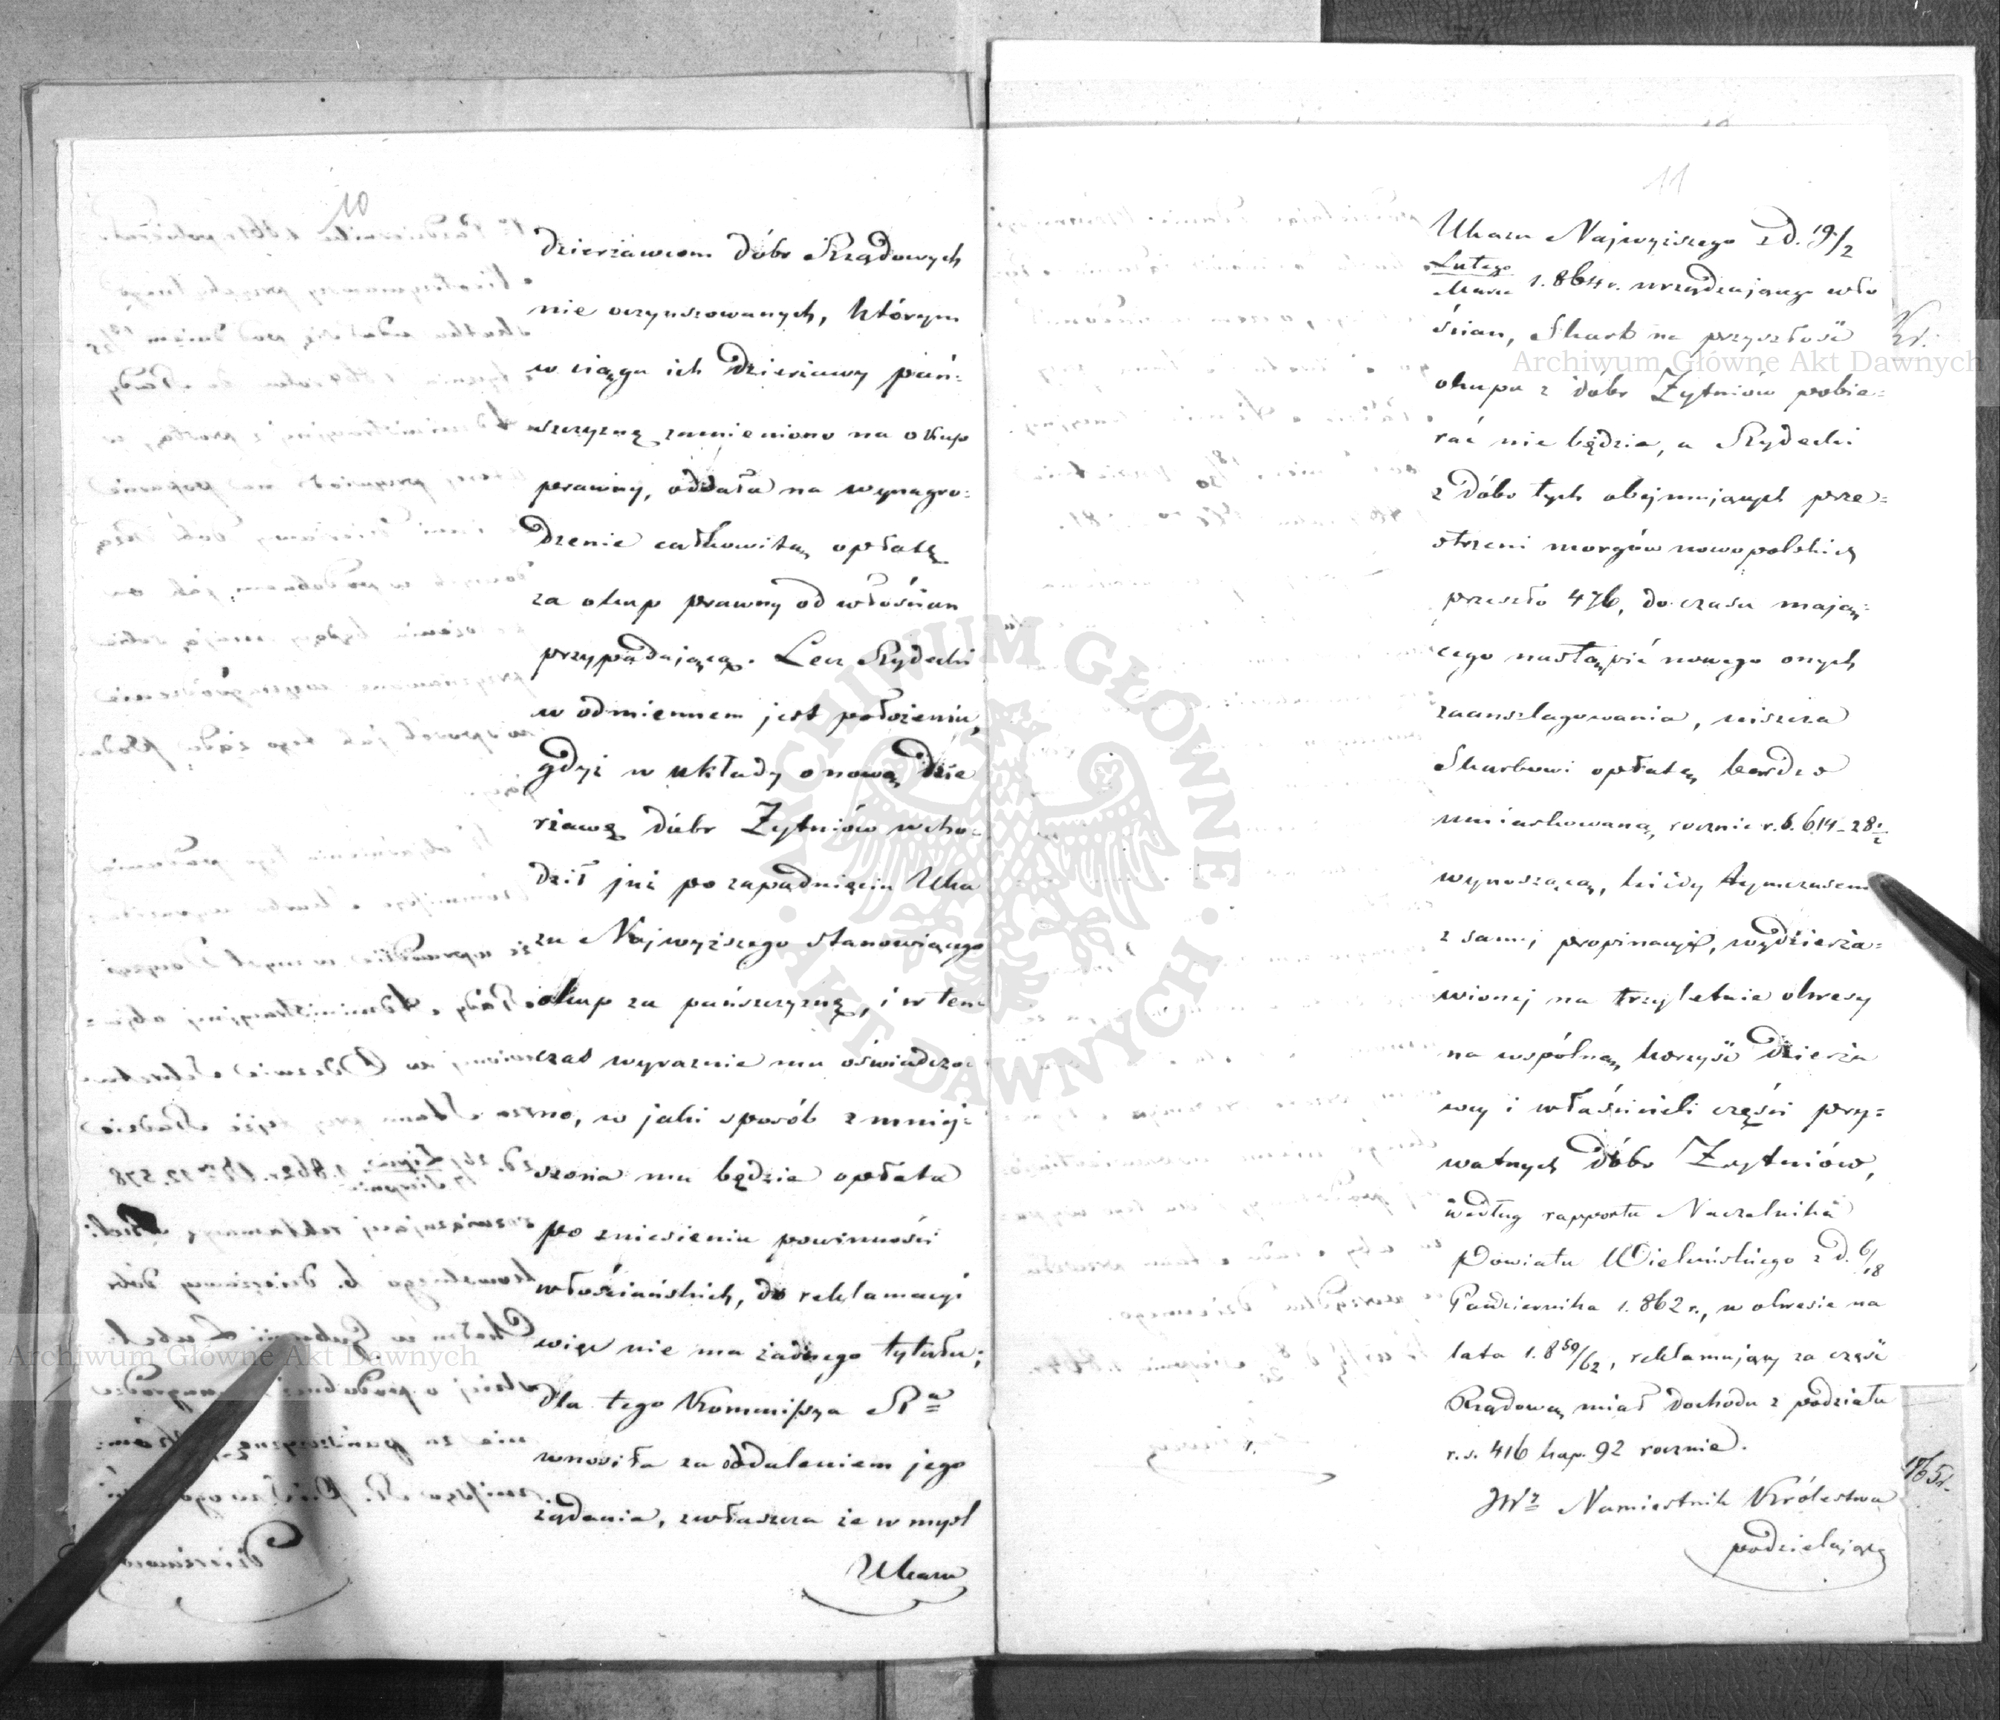 10
dzierżawcom dóbr Rządowych
nie oczynszowanych, którym
w ciągu ich dzierżawy pań=
szczyznę zamieniono na okup
prawny, oddała na wynagro=
dzenie całkowitą opłatę
za okup prawny od włościan
przypadającą. Lecz Rydecki
w odmiennem jest położeniu,
gdyż w układy o nową dzie
rżawę dóbr Żytniów wcho=
dził już po zapadnięciu Uka
zu Najwyższego stanowiącego
okup za pańszczyznę, i w ten=
czas wyraznie mu oświadczo=
no, w jaki sposób zmniej=
szona mu będzie opłata
po zniesieniu powinności
włościańskich, do reklamacyi
więc nie ma żadnego tytułu;
dla tego Kommissya
wnosiła za oddaleniem jego
żądania, zwłaszcza że w myśl
Ukazu
11
Ukazu Najwyższego z d. 19/2
Lutego
Marca 1.864 r. urządzającego wło
ścian, Skarb na przyszłość
okupu z dóbr Żytniów pobie=
rać nie będzie, a Rydecki
z dóbr tych obejmujących prze=
strzeni morgów nowopolskich
przeszło 476, do czasu mają=
cego nastąpić nowego onych
zaanszlagowania, uiszcza
Skarbowi opłatę bardzo
umiarkowaną, rocznie r. s. 614-28½
wynoszącą, kiedy tymczasem
z samej propinacyi, wydzierża=
wionej na trzyletnie okresy
na wspólną korzyść dzierża
wcy i właścicieli części pry=
watnych dóbr Żytniów,
według rapportu Naczelnika
Powiatu Wieluńskiego z d. 6/18
Października 1.862 r., w okresie na
lata 1.859/62, reklamujący za część
Rządową miał dochodu z podziału
r. s. 416 kop. 92 rocznie.
JW. Namiestnik Królestwa
podzielając
Archiwum Główne Akt Dawnych
Archiwum Główne Akt Dawnych
ARCHIWUM GŁÓWNE
AKT DAWNYCH